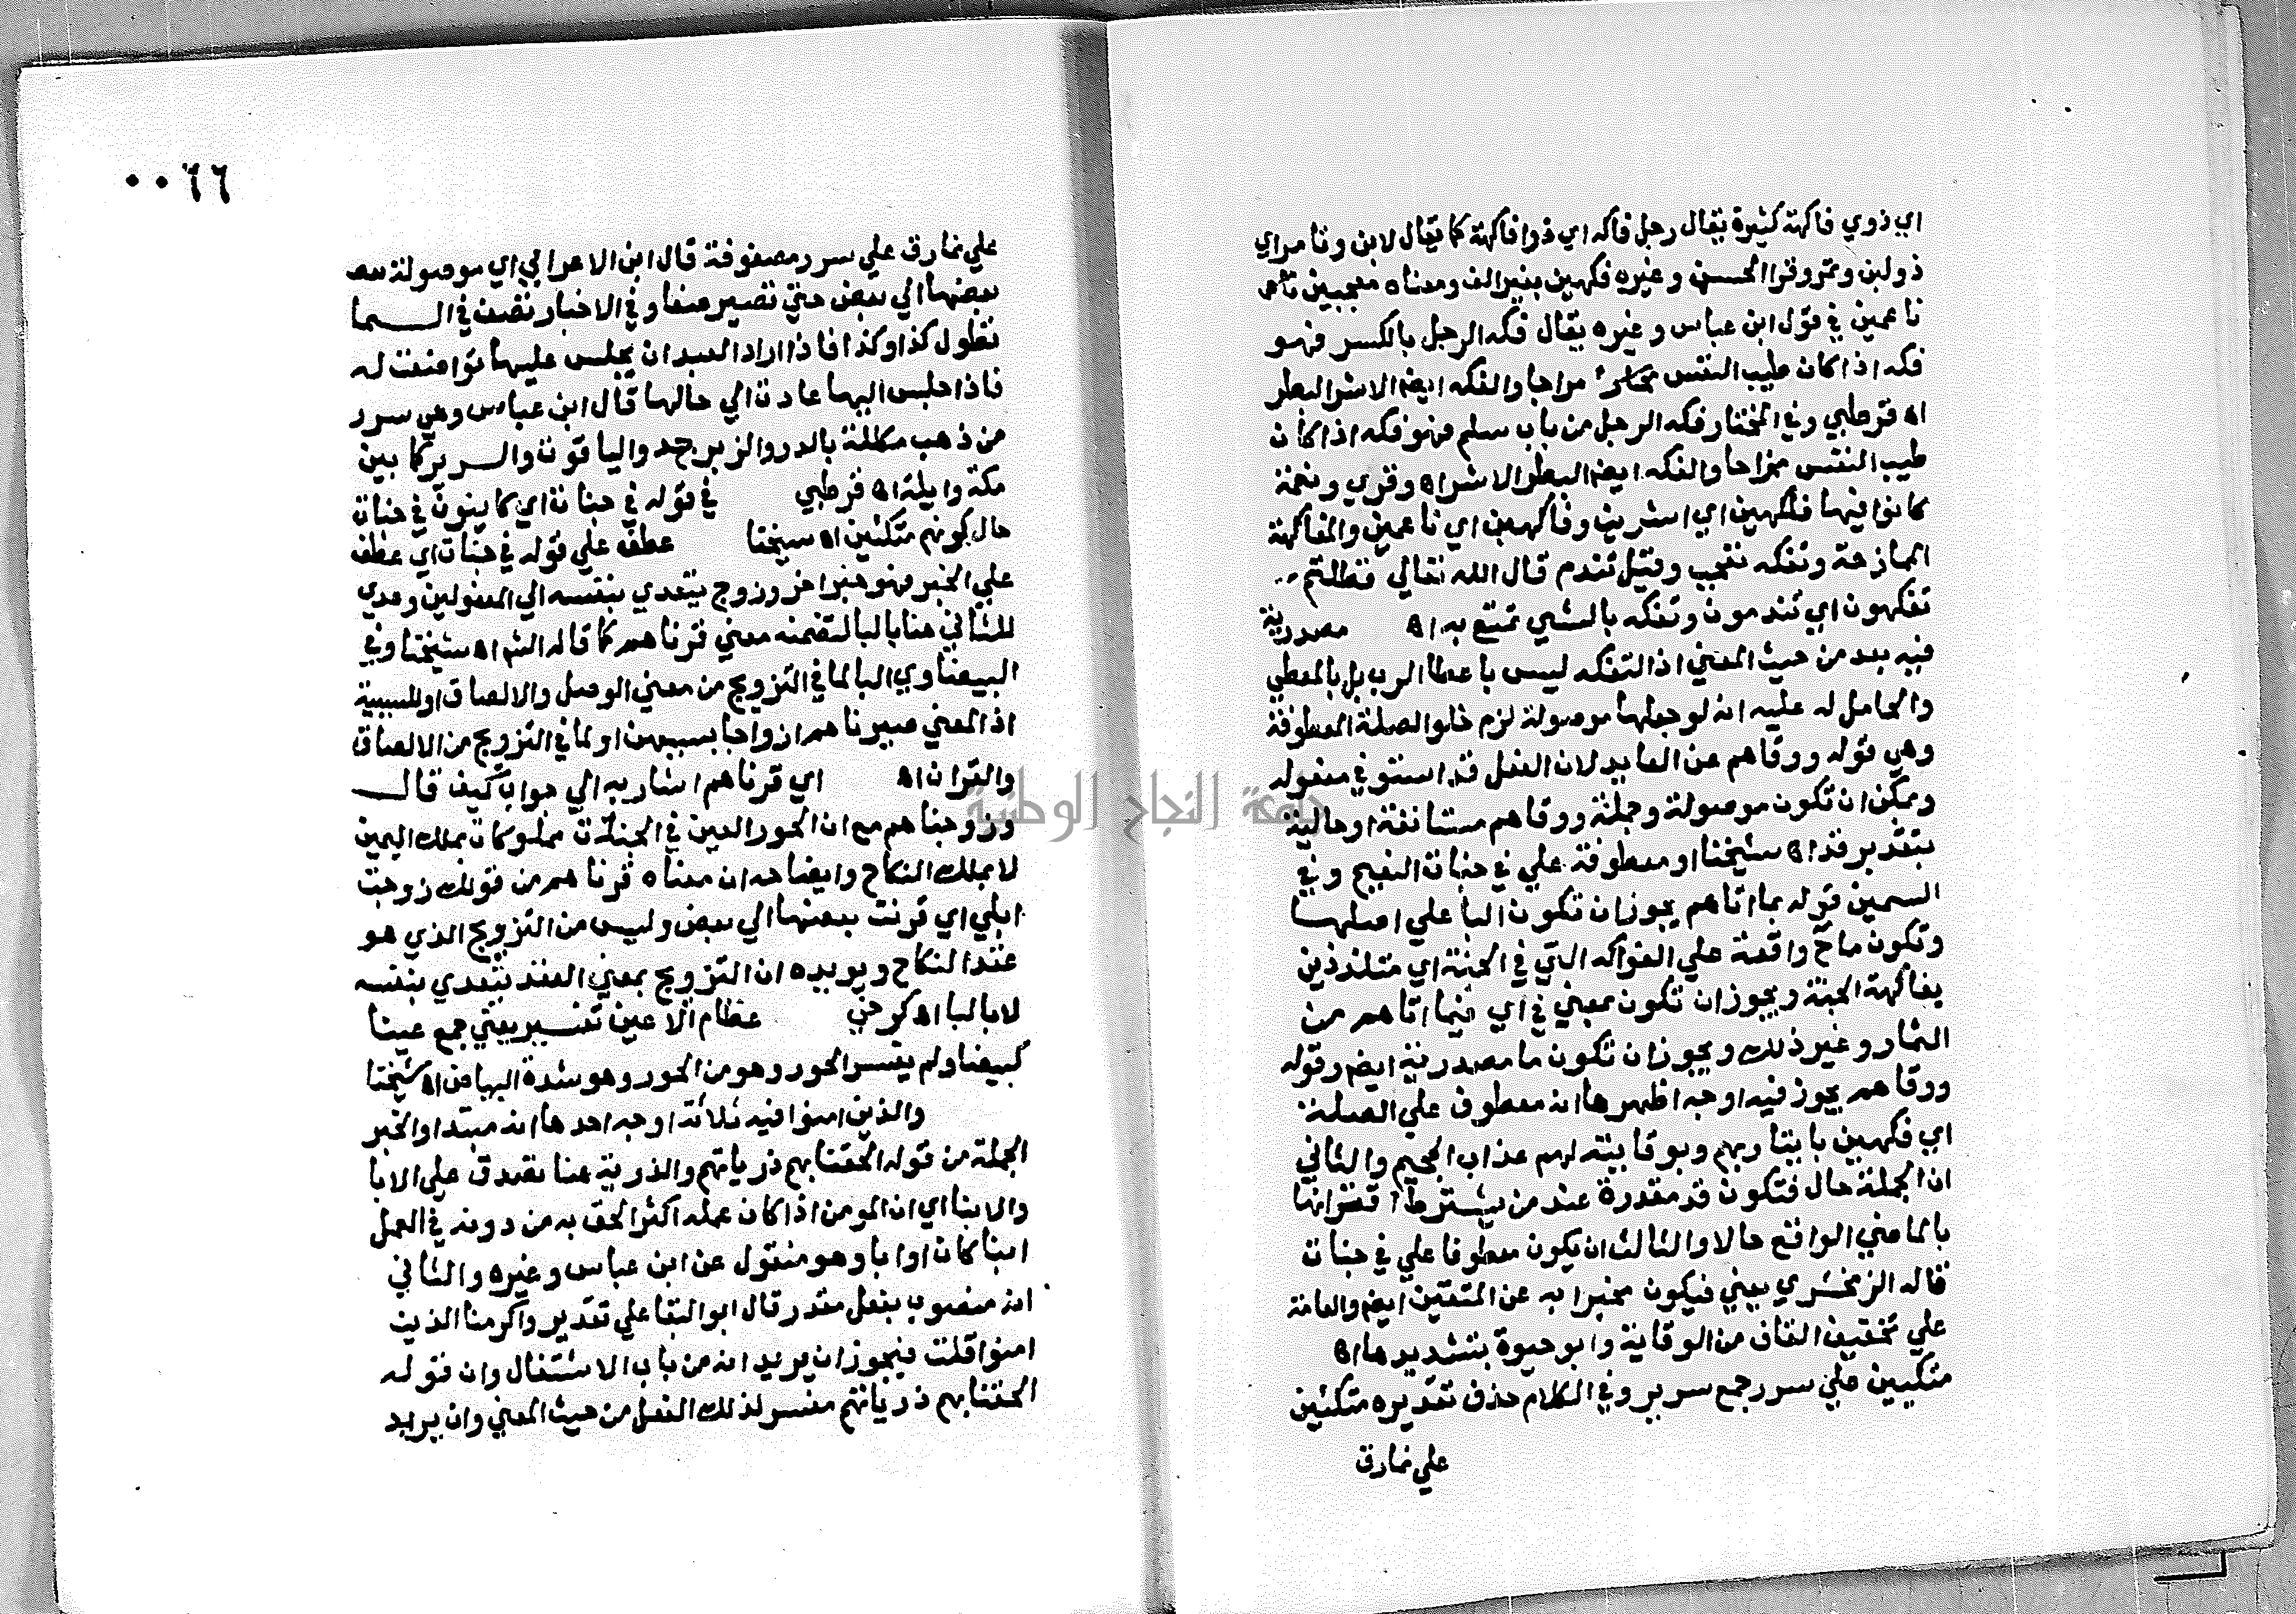 اي ذوي فاكهة كثيرة يقال رجل فاكه اي ذوا فاكهة كما يقال لابن وتامر اي
ذو لبن وتمر وقرا الحسن وغيره فكهين بغير الف ومعناه معجبين
ناعمين في قول ابن عباس وغيره يقال فكه الرجل بالكسر فهو
فكه اذا كان طيب النفس مزاحا والفكه ايضم الاشر البطر
اه قرطبي وفي المختار فكه الرجل من باب سلم فهو فكه اذا كان
طيب النفس مزاحا والفكه ايضم البطر الاشر اه وقري ونعمة
كانوا فيها فكهين اي اشرين وفاكهين اي ناعمين والمفاكهة
الممازحة وتفكه تعجب وقيل تندم قال الله تعالي فظلتم
تفكهون اي تندمون وتفكه بالشي تمتع به اه مصدرية
فيه بعد من حيث المعني اذ التفكه ليس باعطا الرب بل بالمعطي
والحامل له عليه انه لو جعلها موصولة لزم خلو الصلة المعطوفة
وهي قوله ووقاهم عن العايد لان الفعل قد استوفي مفعوله
ويمكن ان تكون موصولة وجملة ووقاهم مستانفة او حالية
بتقدير قد اه شيخنا او معطوفة علي في جنات النعيم وفي
السمين قوله بما اتاهم يجوز ان تكون البا علي اصلها
وتكون ما ح واقعة علي الفواكه التي في الجنة اي متلذذين
بفاكهة الجنة ويجوز ان تكون بمعني في اي فيما اتاهم من
الثمار وغير ذلك ويجوز ان تكون ما مصدرية ايضم وقوله
ووقاهم يجوز فيه اوجه اظهرها انه معطوف علي الصلة
اي فكهين بايتا ربهم وبوقايته لهم عذاب الجحيم والثاني
ان الجملة حال فتكون قد مقدرة عند من يشترط اقترانها
بالماضي الواقع حالا والثالث ان يكون معطوفا علي في جنات
قاله الزمخشري يعني فيكون مخبرا به عن المتقين ايضم والعامة
علي تخفيف القاف من الوقاية وابو حيوة بتشديدها اه
متكيين علي سرر جمع سرير وفي الكلام حذف تقديره متكئين
علي نمارق
٠٠٦٦
علي نمارق علي سرر مصفوفة قال ابن الاعرابي اي موصولة
بعضها الي بعض حتي تصير صفا وفي الاخبار تصف في السما
تطول كذا وكذا فاذا اراد العبد ان يجلس عليها تواضعت له
فاذا جلس اليها عادت الي حالها قال ابن عباس وهي سرر
من ذهب مكللة بالدر والزبرجد والياقوت والسرير كما بين
مكة وايلة اه قرطبي في قوله في جنات اي كاينون في جنات
حال كونهم متكئين اه شيخنا عطف علي قوله في جنات اي عطف
علي الخبر فهو خبر اخر وزوج يتعدي بنفسه الي المفعولين وعدي
للثاني هنا بالبا لتضمنه معني قرناهم كما قاله الشم اه شيخنا وفي
البيضاوي البا لما في التزويج من معني الوصل والالصاق او للسببية
اذ المعني صيرناهم ازواجا بسببهن او لما في التزويج من الالصاق
والقران اه اي قرناهم اشار به الي جواب كيف قال
وزوجناهم مع ان الحور العين في الجنات مملوكات بملك اليمين
لا بملك النكاح وايضاحه ان معناه قرناهم من قولك زوجت
ابلي اي قرنت بعضها الي بعض وليس من التزويج الذي هو
عقد النكاح ويويده ان التزويج بمعني العقد يتعدي بنفسه
لا بالبا اه كرخي عظام الاعين تفسير يعني جمع عينا
كبيضا ولم يفسر الحور وهو من الحور وهو شدة البياض اه شيخنا
والذين امنوا فيه ثلاثة اوجه احدها انه مبتدا والخبر
الجملة من قوله الحقنا بهم ذرياتهم والذرية هنا تصدق علي الابا
والابنا اي ان المومن اذا كان عمله اكثر الحق به من دونه في العمل
ابنا كان او ابا وهو منقول عن ابن عباس وغيره والثاني
انه منصوب بفعل مقدر قال ابو البقا علي تقدير واكرمنا الذين
امنوا قلت فيجوز ان يريد انه من باب الاشتغال وان قوله
الحقنا بهم ذرياتهم مفسر لذلك الفعل من حيث المعني وان يريد
جامعة النجاح الوطنية